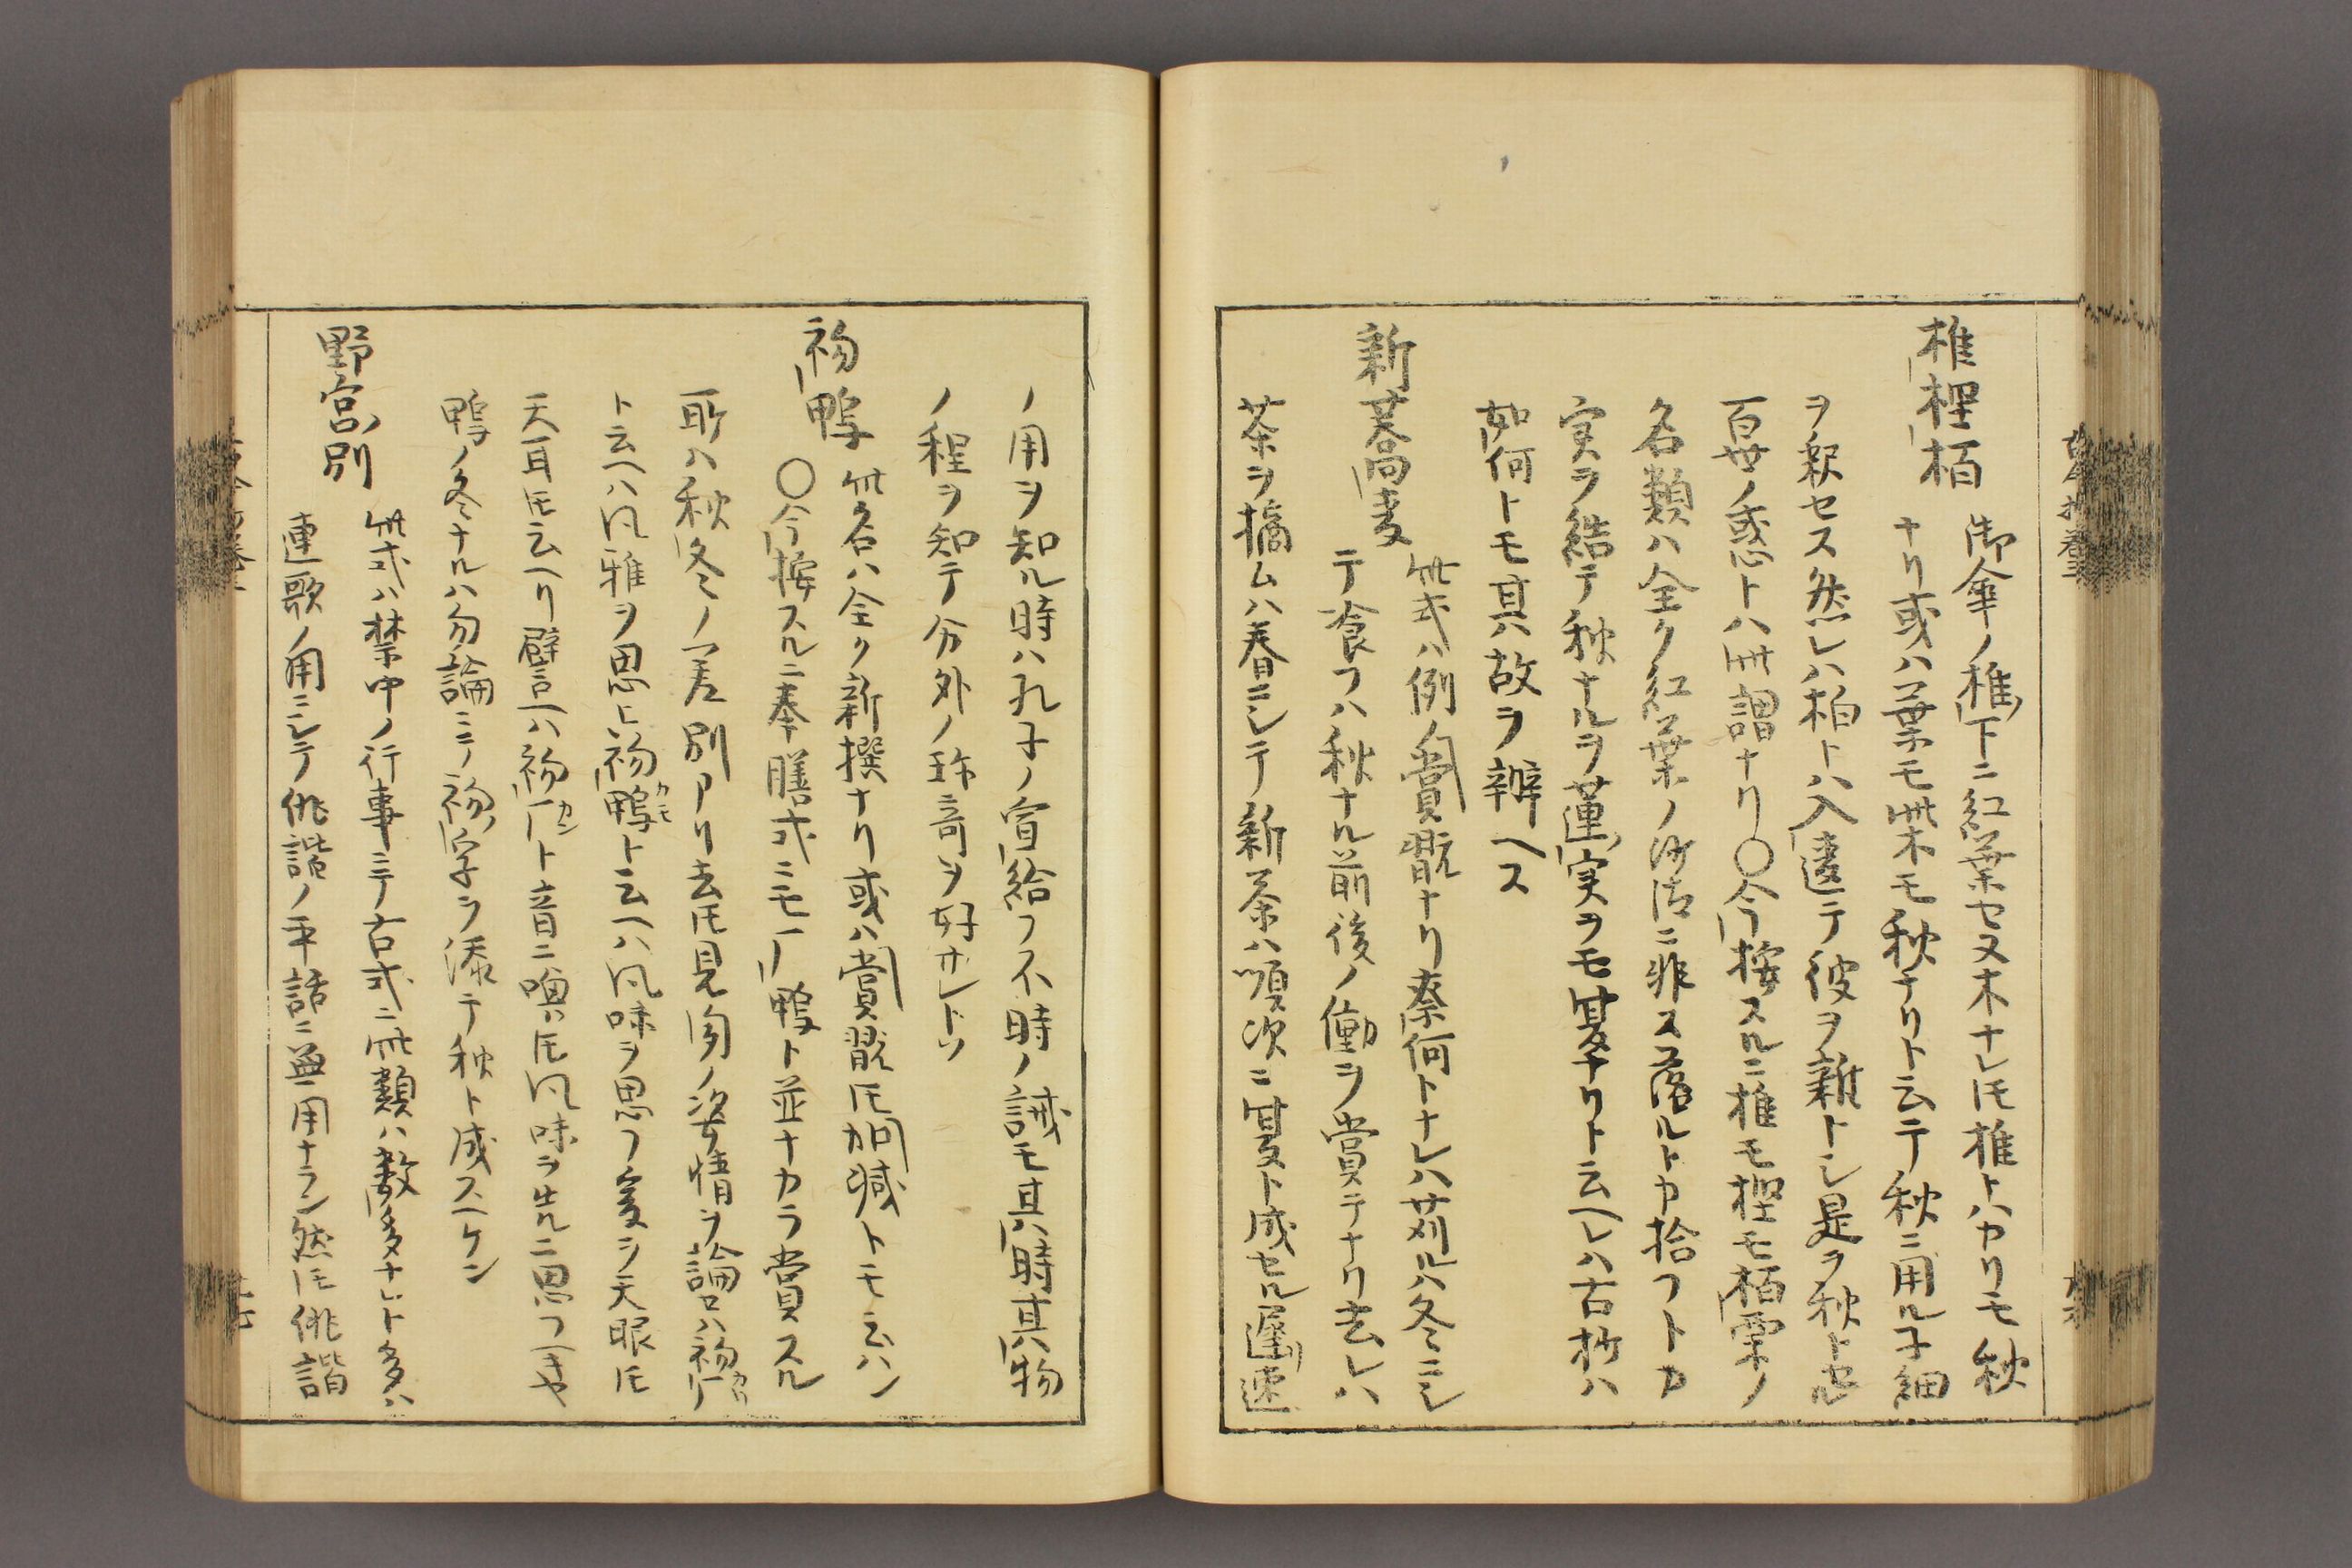 椎樫栢
御傘ノ椎下ニ紅葉セヌ木ナレ𪜈椎ハカリモ秋
ナリ或ハ葉モ此木モ秋ナリト云テ秋ニ用ル子細
ヲ釈セス然レハ柏トハ入違テ彼ヲ雑トシ是ヲ秋ト セル
百世ノ惑トハ此謂ナリ〇今按スルニ椎モ樫モ栢栗ノ
名類ハ全ク紅葉ノ沙汰ニ非ス落ルトカ拾フトカ
実ヲ結テ秋ナルヲ蓮ノ実ヲモ夏ナリト云ヘレハ古抄ハ
如何トモ其故ヲ辨ヘス
新蕎麦
此式ハ例ノ賞翫ナリ奈何トナレハ苅ルハ冬ニシ
テ食フハ秋ナル前後ノ働ヲ賞テナリ去レハ
茶ヲ摘ムハ春ニシテ新茶ハ順次ニ夏ト成セル遅速
ノ用ヲ知ル時ハ孔子ノ宣給フ不時ノ誡モ其時其物
ノ程ヲ知テ分外ノ珎奇ヲ好ナレトソ
初鴨
此名ハ全ク新撰ナリ或ハ賞翫𪜈加減トモ云ハン
〇今按スルニ奉膳式ニモ一鴨ト並ナカラ賞スル
所ハ秋冬ノ差別アリ去𪜈見聞ノ姿情ヲ論セハ初カリ
ト云ヘハ風雅ヲ思ヒ初鴨カモト云ヘハ風味ヲ思フ爰ヲ天眼𪜈
天耳𪜈云ヘリ譬ハ初カント音ニ喚𪜈風味ヲ先ニ思フヘキヤ
鴨ノ冬ナルハ勿論ニテ初ノ字ヲ添テ秋ト成スヘケン
野宮別
此式ハ禁中ノ行事ニテ古式ニ此類ハ数多ナレト多ハ
連歌ノ用ニシテ俳諧ノ平話ニ益用ナラン然𪜈俳諧